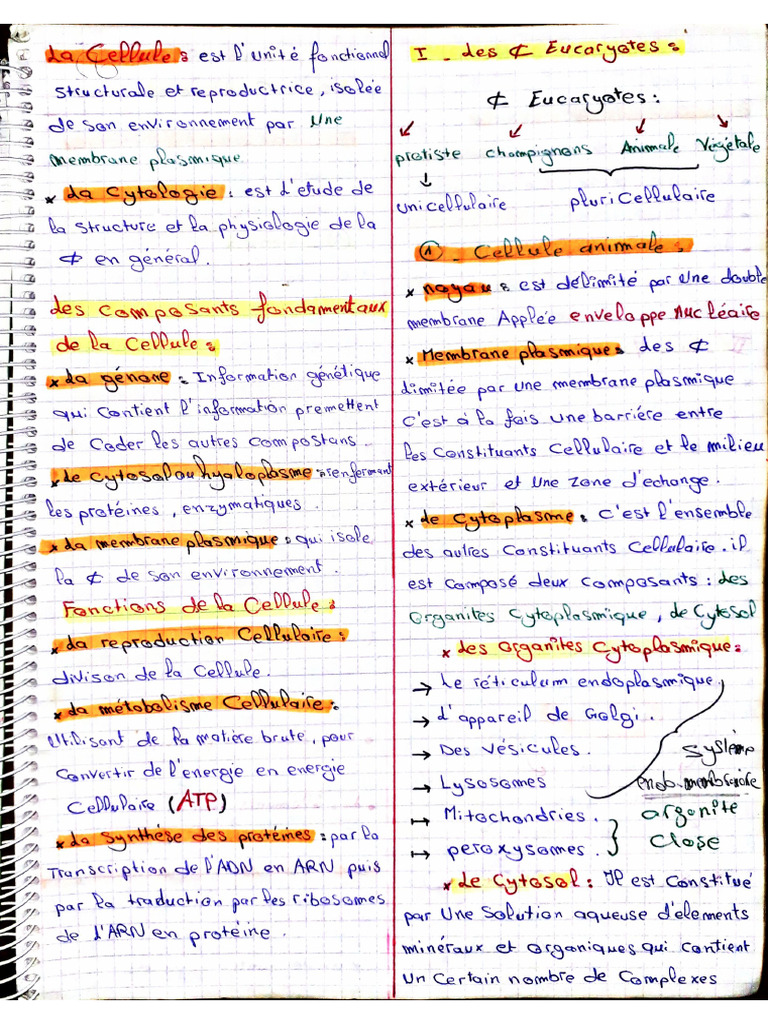 La Cellule : est l'unité fonctionnel
structurale et reproductrice, isolée
de son environnement par une
membrane plasmique
* La Cytologie : est l'etude de
la structure et la physiologie de la
¢ en général.
Les composants fondamentaux
de la Cellule :
* La génome : Information génétique
qui contient l'information premettent
de Coder les autres compostans.
* Le Cytosol ou hyaloplasme : renfermant
les protéines, enzymatiques.
* La membrane plasmique : qui isole
la ¢ de son environnement.
Fonctions de la Cellule :
* La reproduction Cellulaire :
divison de la Cellule.
* La métabolisme Cellulaire :
Utilisant de la matière brute, pour
convertir de l'energie en energie
Cellulaire (ATP)
* La Synthèse des protéines : par la
Transcription de l'ADN en ARN puis
par la traduction par les ribosomes
de l'ARN en protéine.
I - Les ¢ Eucaryotes :
¢ Eucaryotes :
protiste champignons Animale Végétale
unicellulaire pluricellulaire
① - Cellule animale :
* noyau : est délimité par une double
membrane Applée enveloppe nucléaire
* Membrane plasmique : Les ¢
limitée par une membrane plasmique
c'est à la fois une barriére entre
les constituants Cellulaire et le milieu
extérieur et une zone d'echange.
* Le Cytoplasme : c'est l'ensemble
des autres constituants Cellulaire. il
est composé deux composants : Les
organites Cytoplasmique, Le Cytosol
* Les organites Cytoplasmique :
→ Le réticulum endoplasmique
→ L'appareil de Golgi.
→ Des vésicules.
→ Lysosomes
Systèm
endo.membranaire
→ Mitochondries.
→ peroxysomes.
organite
close
* Le Cytosol : Il est constitué
par une solution aqueuse d'elements
minéraux et organiques qui contient
un certain nombre de complexes